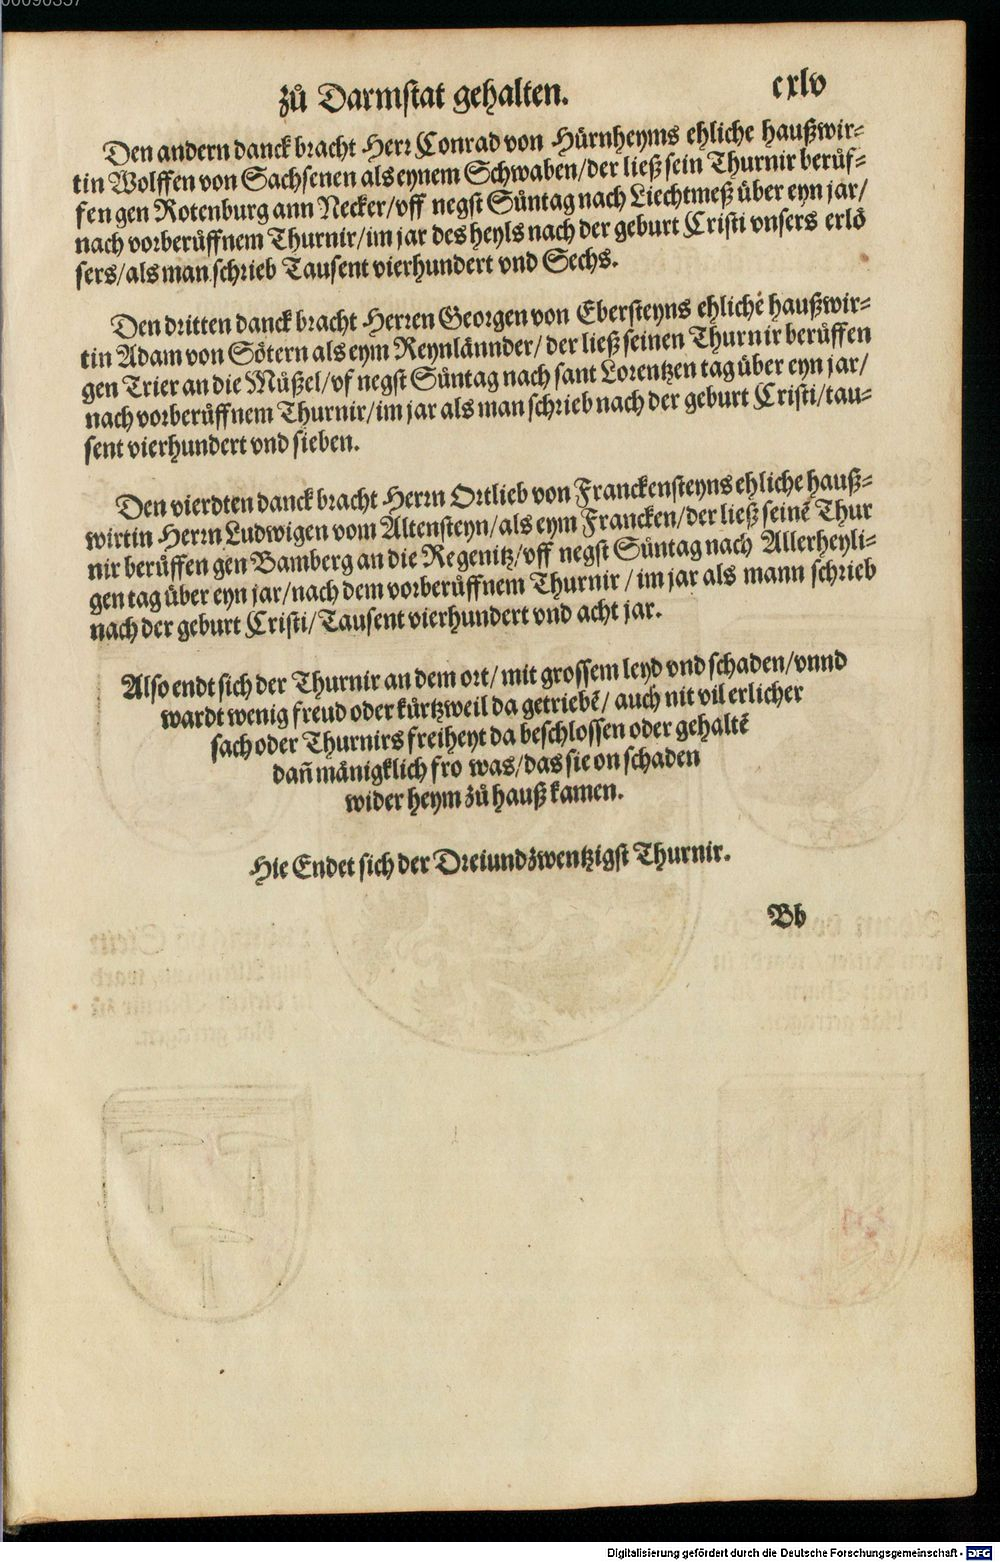 zů Darmstat gehalten.
cxlv
Den andern danck bracht Herr Conrad von Hürnheyms ehliche haußwir-
tin Wolffen von Sachsenen als eynem Schwaben/der ließ sein Thurnir berůf-
fen gen Rotenburg ann Necker/vff negst Sůntag nach Liechtmeß über eyn jar/
nach vorberůffnem Thurnir/im jar des heyls nach der geburt Cristi vnsers erlö
sers/als man schrieb Tausent vierhundert vnd Sechs.
Den dritten danck bracht Herren Georgen von Ebersteyns ehlichē haußwir-
tin Adam von Sötern als eym Reynlännder/der ließ seinen Thurnir berůffen
gen Trier an die Müßel/vf negst Sůntag nach sant Lorentzen tag über eyn jar/
nach vorberůffnem Thurnir/im jar als man schrieb nach der geburt Cristi/tau-
sent vierhundert vnd sieben.
Den vierdten danck bracht Herrn Ortlieb von Franckensteyns ehliche hauß-
wirtin Herrn Ludwigen vom Altensteyn/als eym Francken/der ließ seinē Thur
nir berůffen gen Bamberg an die Regenitz/vff negst Sůntag nach Allerheyli-
gen tag über eyn jar/nach dem vorberůffnem Thurnir/im jar als mann schrieb
nach der geburt Cristi/Tausent vierhundert vnd acht jar.
Also endt sich der Thurnir an dem ort/mit grossem leyd vnd schaden/vnnd
wardt wenig freud oder kürtzweil da getriebē/auch nit vil erlicher
sach oder Thurnirs freiheyt da beschlossen oder gehaltē
dañ mänigklich fro was/das sie on schaden
wider heym zů hauß kamen.
Hie Endet sich der Dreiundzwentzigst Thurnir.
Bb
Digitalisierung gefördert durch die Deutsche Forschungsgemeinschaft - DFG